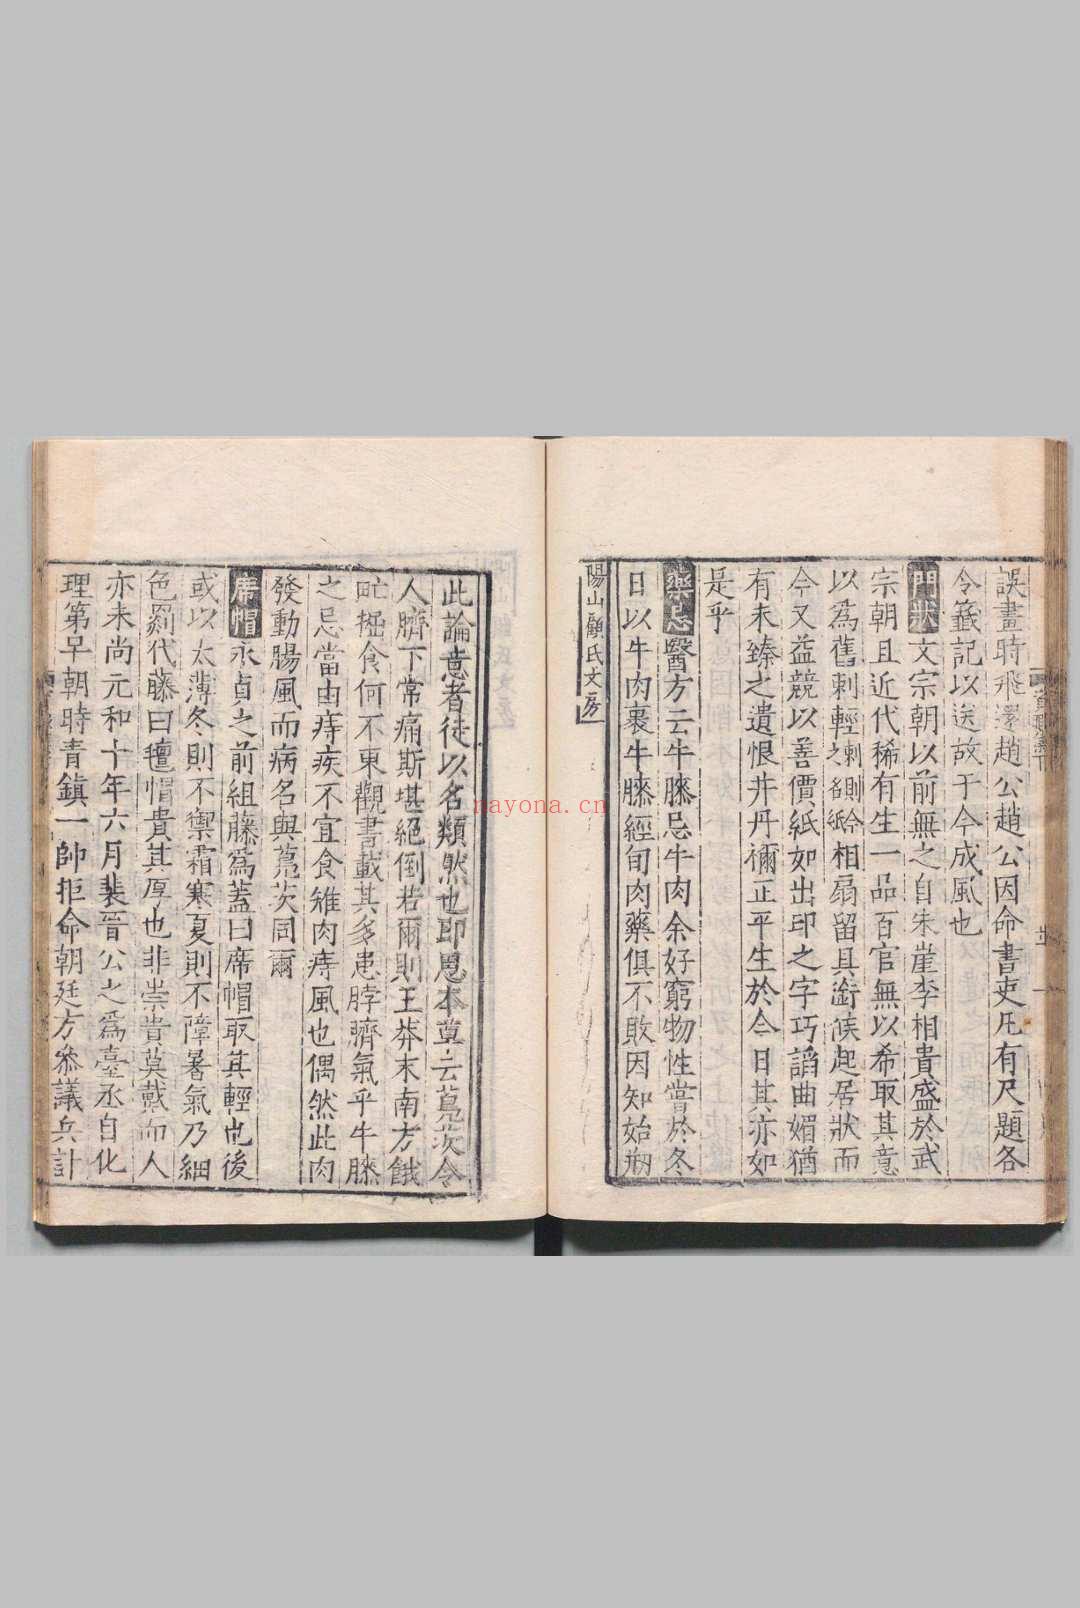 誤畫時飛還趙公趙公因命書吏凡有尺題各
令籤記以送故于今成風也
門狀文宗朝以前無之自朱崖李相貴盛於武
宗朝且近代稀有生一品百官無以希取其意
以為舊刺輕刺則今之名紙相扇留具銜候起居狀而
今又益競以善價紙如出印之字巧諂曲媚猶
有未臻之遺恨井丹禰正平生於今日其亦如
是乎
藥忌醫方云牛膝忌牛肉余好窮物性嘗於冬
日以牛肉裹牛膝經旬肉藥俱不敢因知始
陽山顧氏文房
此論意者徒以名類然也即思本草云葛茨令
人臍下常痛斯堪絕倒若爾則王莽末南方餓
甿掘食何不東觀書載其多患脖臍氣乎牛膝
之忌當由痔疾不宜食雉肉痔風也偶然此肉
發動腸風而病名與葛茨同爾
席帽永貞之前組藤為蓋曰席帽取其輕也後
或以太薄冬則不禦霜寒夏則不障暑氣乃細
色罽代藤曰氊帽貴其厚也非崇貴莫戴而人
亦未尚元和十年六月裴晉公之為臺丞自化
理第早朝時青鎮一帥拒命朝廷方叅議兵計
nayona.cn